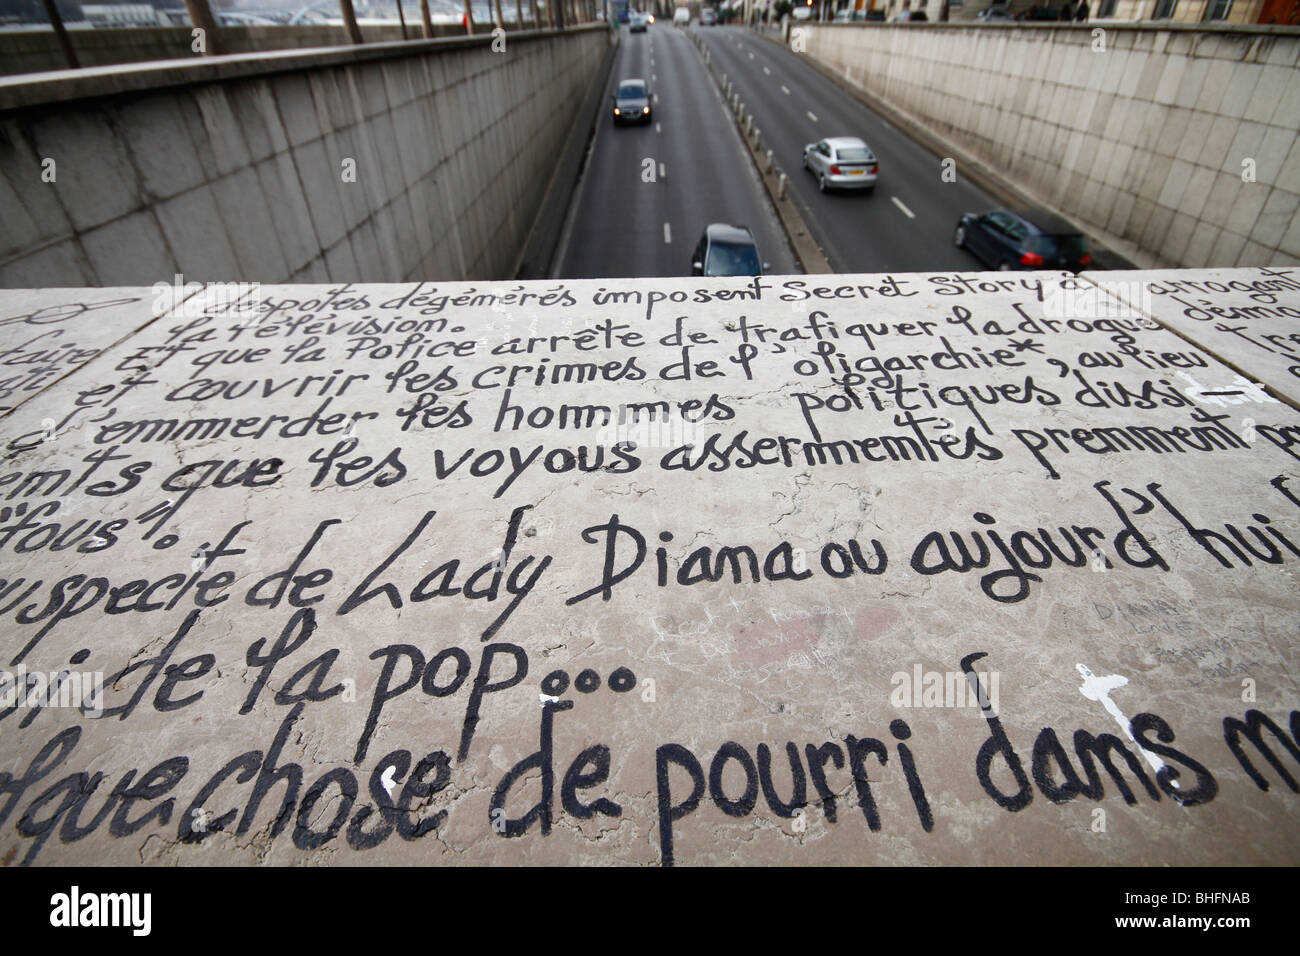 despotes dégémérés imposent Secret Story à
la télévision.
Et que la Police arrête de trafiquer la drogue
et couvrir les crimes de l'oligarchie*, au lieu
d'emmerder les hommes politiques dissi-
emts que les voyous assermemtés premment
"fous".
uspecte de Lady Diana ou aujourd'hui
de la pop...
lque chose de pourri dams
arrogant
démo
taire
DIANA
a
alamy
Image ID: BHFNAB
www.alamy.com